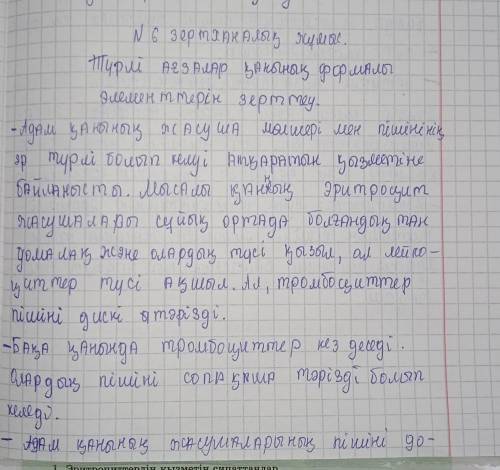 N 6 зертханалық жұмыс.
Түрлі ағзалар қанының формалы
элементтерін зерттеу.
-Адам қанының жасуша мөлшері мен пішінінің
әр түрлі болып келуі атқаратын қызметіне
байланысты. Мысалы қанның эритроцит
жасушалары сұйық ортада болғандықтан
домалақ және олардың түсі қызыл, ал лейко-
циттер түсі ақшыл. Ал, тромбоциттер
пішіні диск тәрізді.
-Бақа қанында тромбоциттер кез деседі.
Олардың пішіні сопақша тәрізді болып
келеді.
- Адам қанының жасушаларының пішіні до-
1. Эритроциттердің қызметін сипаттаңдар